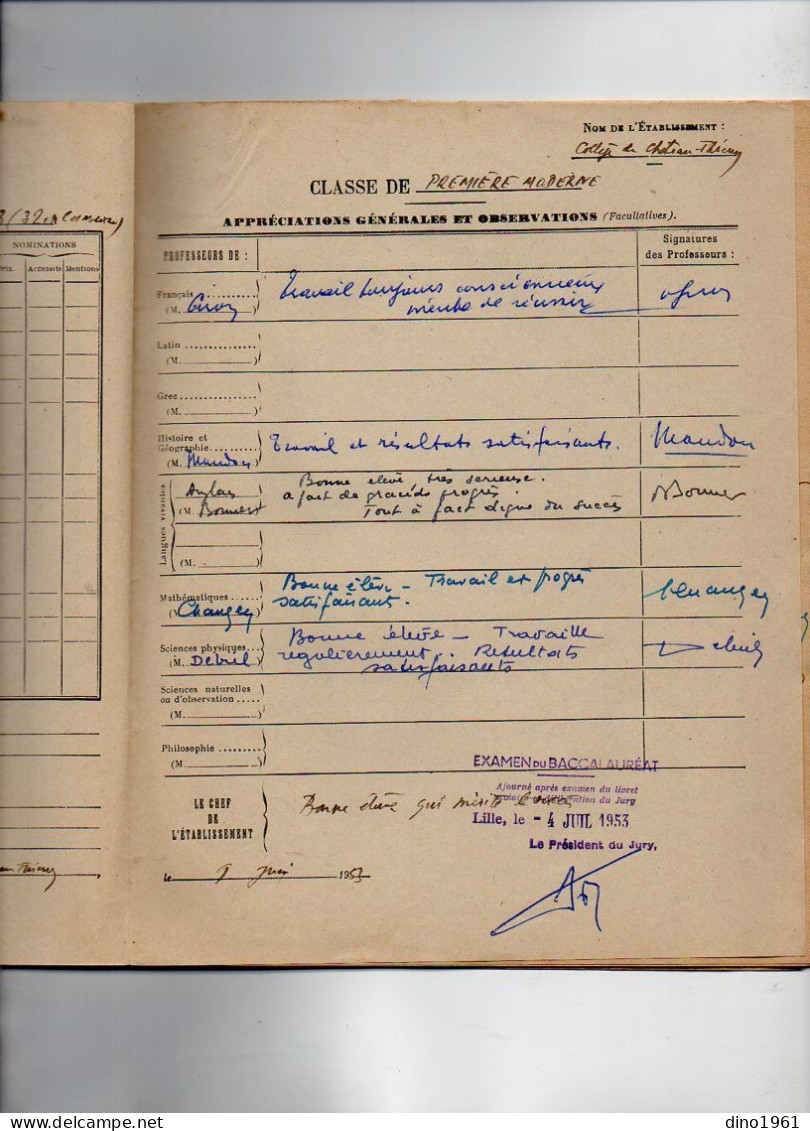 NOM DE L'ÉTABLISSEMENT :
Collège de Château-Thierry
CLASSE DE PREMIÈRE MODERNE
APPRÉCIATIONS GÉNÉRALES ET OBSERVATIONS (Facultatives).
NOMINATIONS
Accessits Mentions
PROFESSEURS DE :
Signatures
des Professeurs :
Français
(M. )
Travail toujours consciencieux
mérite de réussir
Latin
(M. )
Grec
(M. )
Histoire et
Géographie
(M. Maudou)
Travail et résultats satisfaisants.
Maudou
Langues vivantes
Anglais
(M. Bonnerot
Bonne élève très sérieuse.
a fait de grands progrès.
Tout à fait digne du succès
(M. )
Mathématiques
(M. Changey
Bonne élève - Travail et progrès
satisfaisants.
Changey
Sciences physiques
(M. Debul
Bonne élève - Travaille
regulièrement. Résultats
satisfaisants
Sciences naturelles
ou d'observation
(M. )
Philosophie
(M. )
EXAMEN DU BACCALAURÉAT
Ajourné après examen du livret
scolaire et délibération du Jury
Lille, le - 4 JUIL 1953
Le Président du Jury,
LE CHEF
DE
L'ÉTABLISSEMENT
Bonne élève qui mérite le succès
le 9 Juin 1953
dino1961